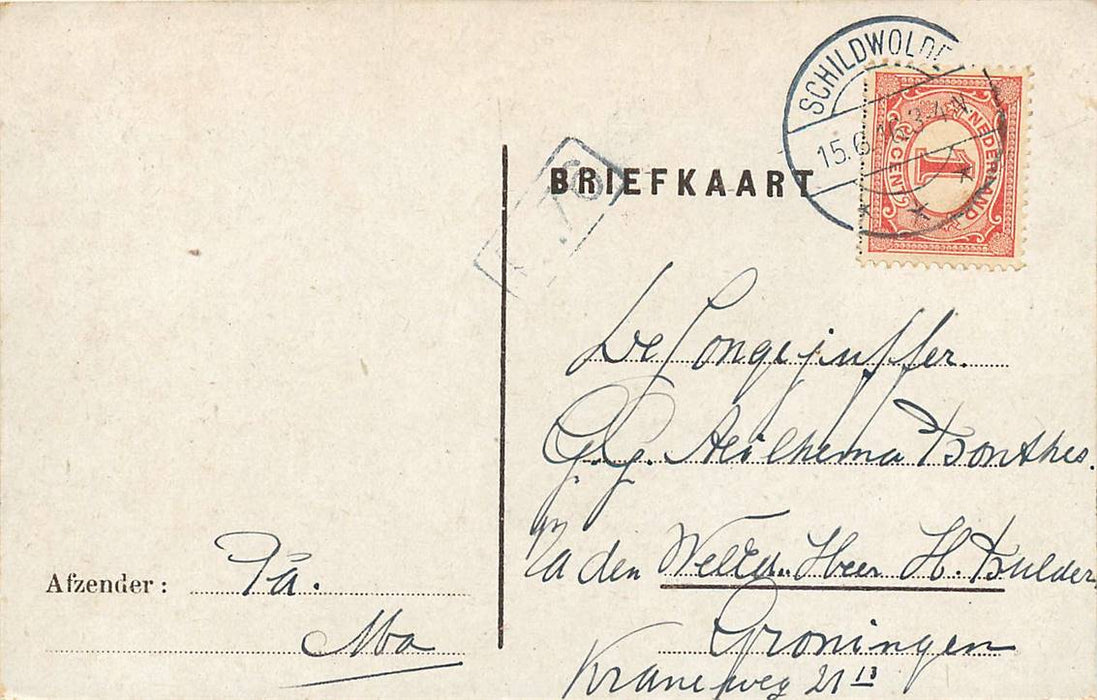 SCHILDWOLDE
15.6.16.3-4N
NEDERLAND
1
CENT
BRIEFKAART
De Jongejuffer.
G. G. Aeilkema Bonthes.
p/a den Weled. Heer H. Bulder
Groningen
Kraneweg 21 13
Afzender: Pa.
Ma